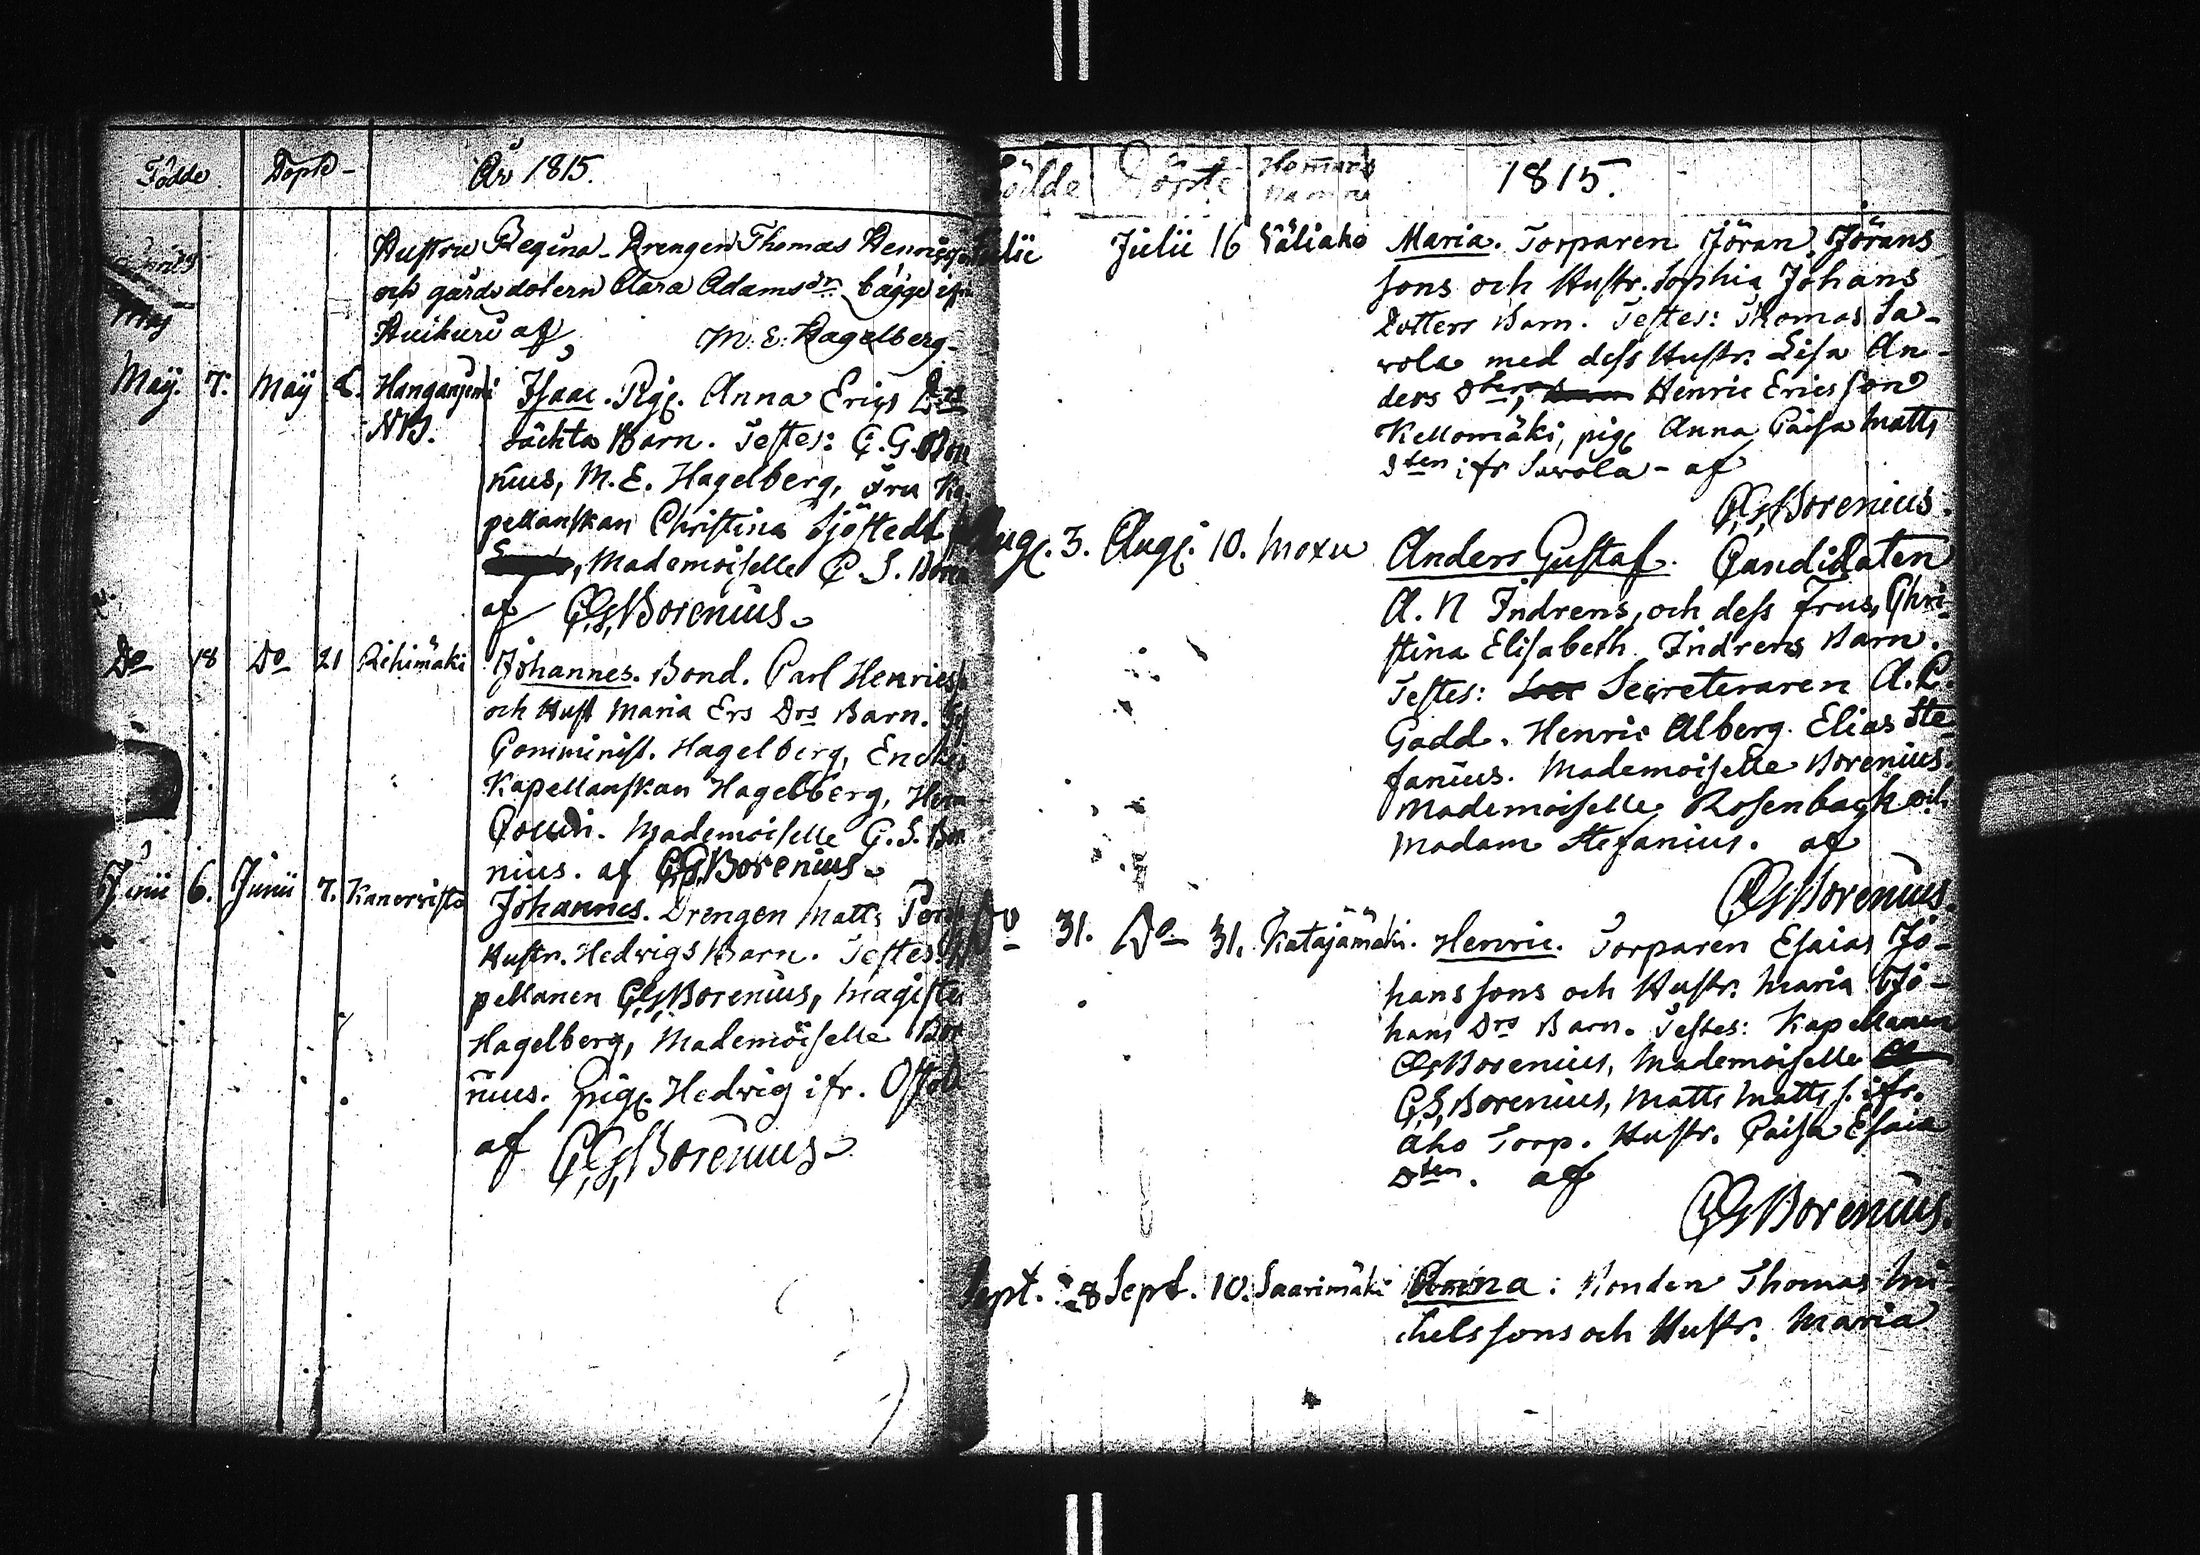 Födde Döpte År 1815.
Hustru Regina - Drengen Thomas Henriss.
och gårdsdotern Clara Adams dr. bägge ifr
Huikuri af M. E. Hagelberg.
May
May. 7. May 8. Hangasjerwi Isaac. Pig. Anna Erics Drs
NB. oächta Barn. Testes: C. G. Bore
nius, M. E. Hagelberg, Fru Ka-
pellanskan Christina Sjöstedt
, Mademoiselle C. S. Bore
af C. G. Borenius.
Do 18 Do 21 Rihimäki Johannes. Bond. Carl Henrics
och Hust Maria Ers Drs Barn.
Comminist. Hagelberg, Enckef
Kapellanskan Hagelberg, Herr
Collin. Mademoiselle C. S. Bore
nius. af C. G. Borenius.
Junii 6. Junii 7. Kanervisto Johannes. Drengen Matts
Hustr. Hedwigs Barn. Testes: Ka
pellanen C. G. Borenius, Magister
Hagelberg, Mademoiselle Bore
nius. pig. Hedwig ifr.
af C. G. Borenius.
Födde Döpte Hemans Namn 1815.
Julii Julii 16 Väliaho Maria. Torparen Jöran Jörans
sons och Hustr. Sophia Johans
Dotters Barn. Testes: Thomas Sa-
wola med dess Hustr. Lisa An-
ders Dter, Henric Ericsson
Kellomäki, pig. Anna Caisa Matts
dten ifr Sawola - af
C. G. Borenius.
Aug. 3. Aug. 10. Moxu Anders Gustaf. Candidaten
A. N Indrens, och dess Frus, Chri-
stina Elisabeth Indrens Barn.
Testes: Secreteraren A. C.
Gadd. Henric Alberg. Elias Ste-
fanius. Mademoiselle Borenius.
Mademoiselle Rosenback och
Madam Stefanius. af
C. G. Borenius.
Do 31. Do 31. Katajämäki. Henric. Torparen Esaias Jo-
hans sons och Hustr. Maria Jo-
hans Drs Barn. Testes: Kapellanen
C. G. Borenius, Mademoiselle
C. S. Borenius, Matts Matts s. ifr.
Aho Torp. Hustr. Caisa Esaia
dten. af
C. G. Borenius.
Sept. 8 Sept. 10. Saarimäki Anna: Bonden Thomas Mi-
chels sons och Hustr. Maria